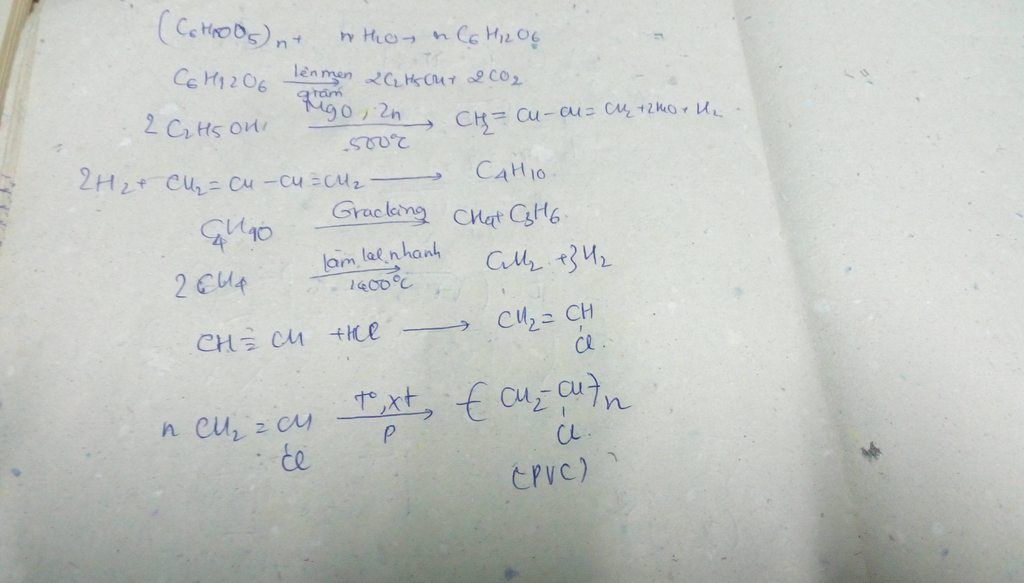 (C6H10O5)n + nH2O → nC6H12O6
C6H12O6 lên men giấm → 2C2H5OH + 2CO2
2C2H5OH MgO, Zn 500°C → CH2=CH-CH=CH2 + 2H2O + H2
2H2 + CH2=CH-CH=CH2 → C4H10
C4H10 Cracking → CH4 + C3H6
2CH4 làm lạnh nhanh 1400°C → C2H2 + 3H2
CH≡CH + HCl → CH2=CH
Cl
nCH2=CH t°, xt p → (CH2-CH)n
Cl Cl
(PVC)